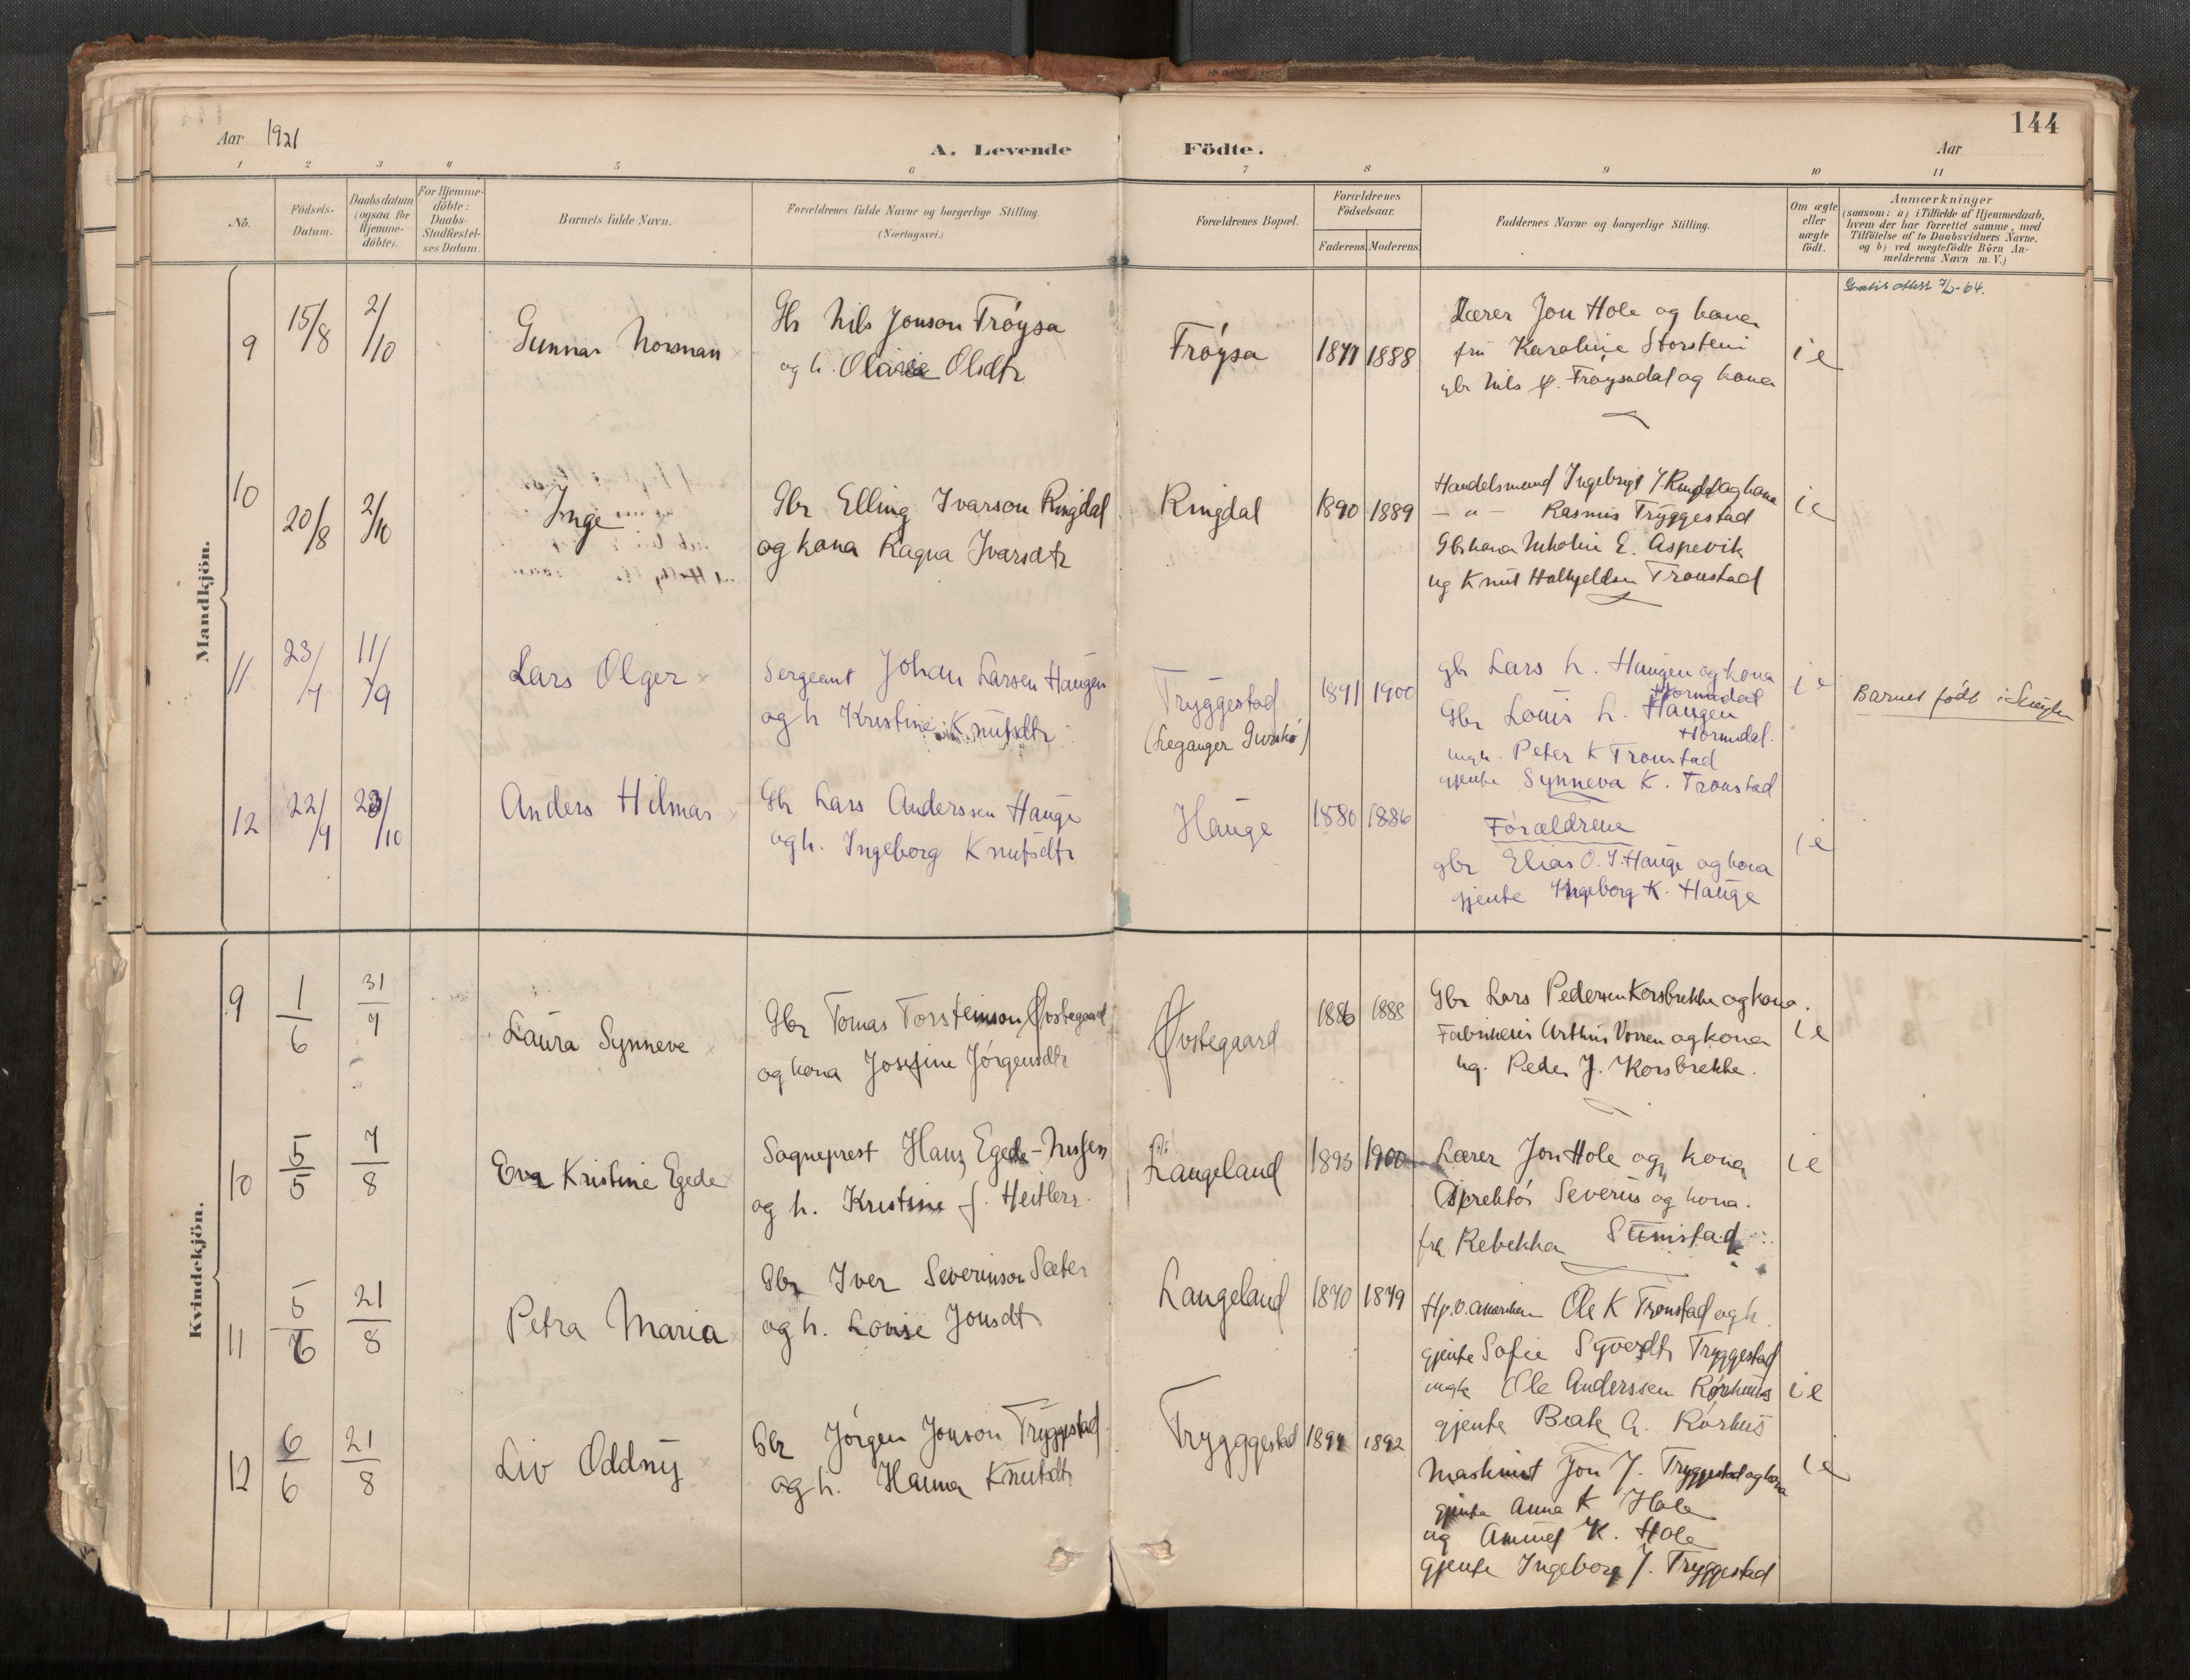 144
Aar 1921
A. Levende Födte.
Aar
1 2 3 4 5 6 7 8 9 10 11
No.
Födsels-
Datum.
Daabsdatum
(ogsaa for
Hjemme-
döbte).
For Hjemme-
döbte:
Daabs-
Stadfæstel-
ses Datum.
Barnets fulde Navn.
Forældrenes fulde Navne og borgerlige Stilling.
(Næringsvei.)
Forældrenes Bopæl.
Forældrenes
Födselsaar.
Faderens. Moderens.
Faddernes Navne og borgerlige Stilling.
Om ægte
eller
uægte
födt.
Anmærkninger
(saasom: a) i Tilfælde af Hjemmedaab,
hvem der har forrettet samme, med
Tilföielse af to Daabsvidners Navne.
og b) ved uægtefödte Börn An-
melderens Navn m. V.)
Mandkjön.
9
15/8
2/10
Gunnar Norman
Gbr Nils Jonson Frøysa
og h. Oldtr
Frøysa
1888
Lærer Jon Hole og kona
fru Karoline Storstein
gbr Nils Frøysadal og kona
ie
10
20/8
2/10
Inge
Gbr Elling Ivarson Ringdal
og kona Ragna Ivarsdtr
Ringdal
1890 1889
Handelsmand Ingebrigt J Ringdal og kona
— " — Rasmus Tryggestad
Gbrkona E. Aspevik
ug Knut Hallkjeldsen Tronstad
ie
11
23/7
11/9
Lars Olger
Sergeant Johan Larsen Haugen
og h Kristine Knutsdtr
Tryggestad
(Leganger Gurskø)
1891 1900
gbr Lars L. Haugen og kona
Hornindal
Gbr Louis L. Haugen
Hornindal.
ungk. Peter K Tronstad
gjente Synneva K. Tronstad
ie
Barnet født i
12
22/9
23/10
Anders Hilmar
Gbr Lars Anderssen Hauge
og h. Ingeborg Knutsdtr
Hauge
1880 1886
Forældrene
gbr Elias O. J. Hauge og kona
gjente Ingeborg K. Hauge
ie
Kvindekjön.
9
1/6
31/7
Laura Synneve
Gbr Tomas Torsteinson Øvstegaard
og kona Josefine Jørgensdtr
Øvstegaard
1886 1888
Gbr Lars Pedersen Korsbrekke og kona.
Fabrikeier Arthur Vorren og kona
ug. Peder J. Korsbrekke.
ie
10
5/5
7/8
Eva Kristine Egede
Sogneprest Hans Egede-Nissen
og h. Kristine f. Heitlers
Langeland
1893 1900
Lærer Jon Hole og kona
Direktør Severin og kona.
frk. Rebekka
ie
11
5/6
21/8
Petra Maria
Gbr Iver Severinson Sæter
og h. Louise Jonsdt
Langeland
1870 1879
Ole K Tronstad og h.
gjente Sofie Syverdtr Tryggestad
ungk Ole Anderssen Rørhus
gjente Beate A. Rørhus
ie
12
6/6
21/8
Liv Oddny
Gbr Jørgen Jonson Tryggestad
og h. Hanna Knutsdtr
Trygggestad
1892
Maskinist Jon J. Tryggestad og kona
gjente Anna K Hole
ug Amund K. Hole
gjente Ingeborg J. Tryggestad
ie